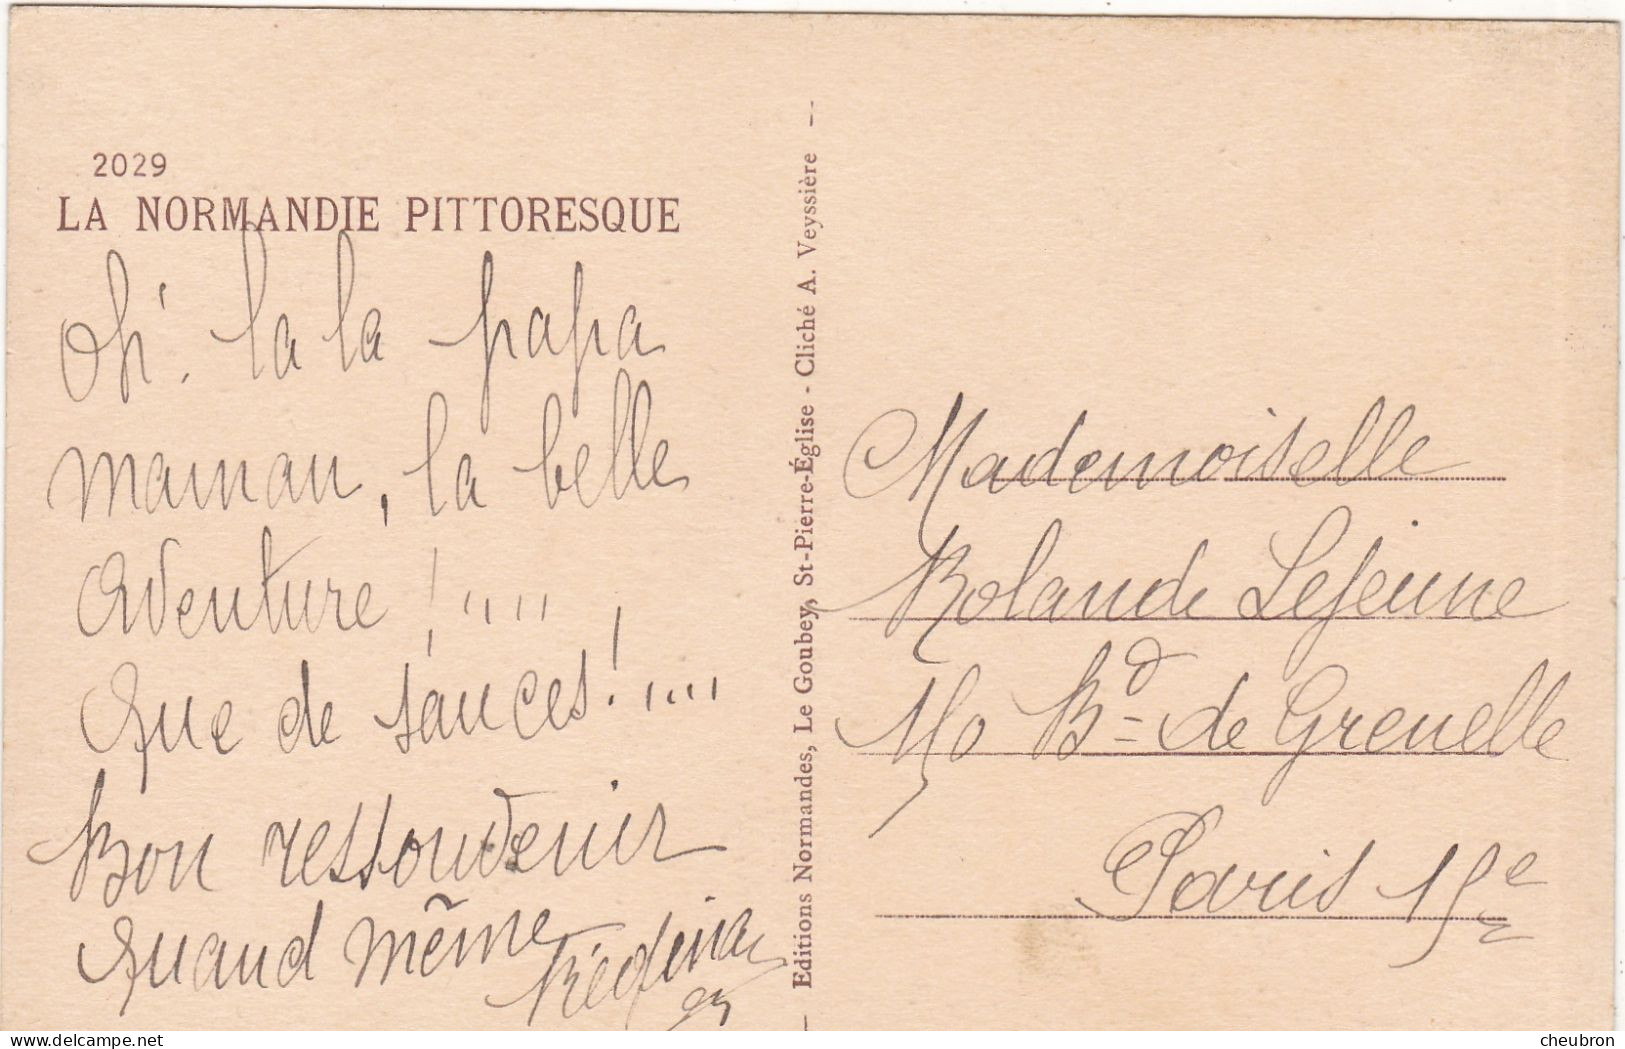 2029
LA NORMANDIE PITTORESQUE
Oh! la la papa
maman, la belle
aventure !....
que de sauces!....
Bon ressouvenir
quand même
Editions Normandes, Le Goubey, St-Pierre-Église - Cliché A. Veyssière -
Mademoiselle
Rolande Lejeune
Bd de Grenelle
Paris 15e
delcampe.net
cheubron